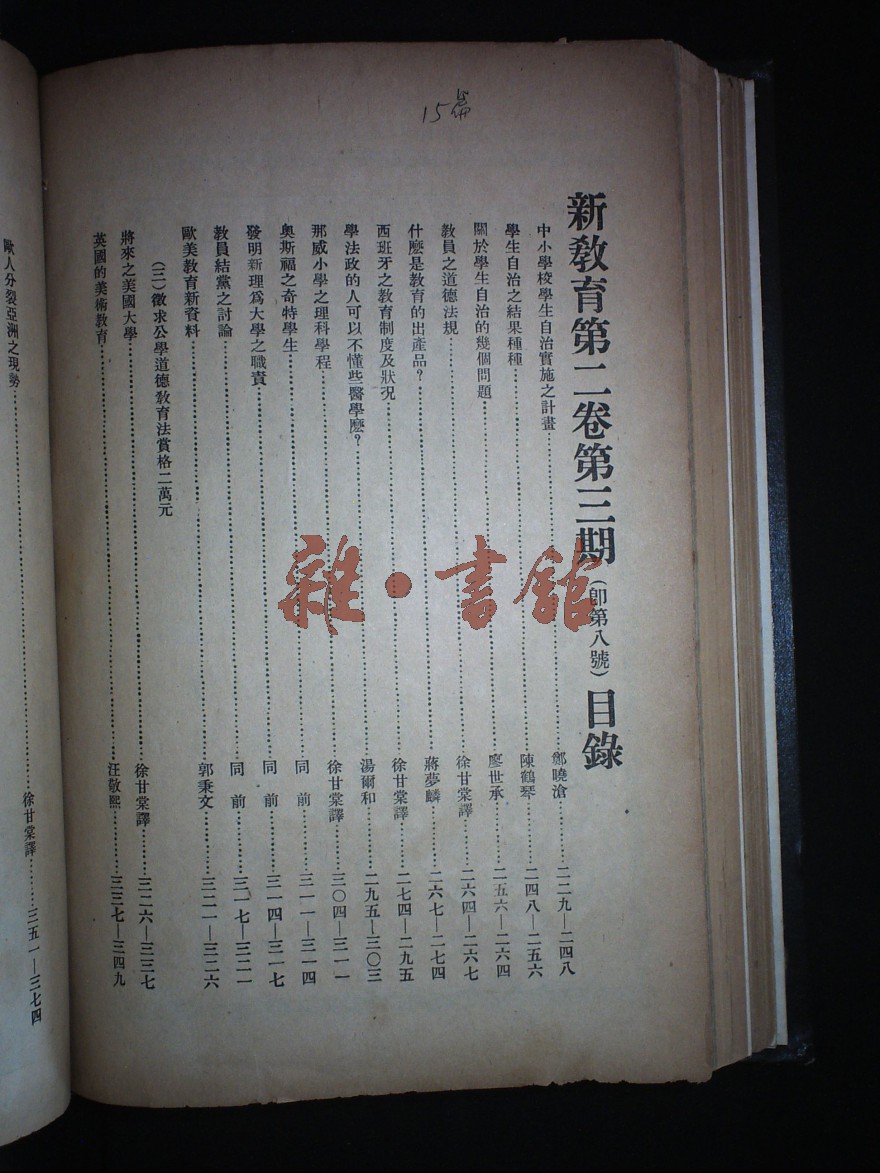 15篇
新教育第二卷第三期（卽第八號）目錄
中小學校學生自治實施之計畫……鄭曉滄……二二九—二四八
學生自治之結果種種……陳鶴琴……二四八—二五六
關於學生自治的幾個問題……廖世承……二五六—二六四
教員之道德法規……徐甘棠譯……二六四—二六七
什麽是教育的出產品？……蔣夢麟……二六七—二七四
西班牙之教育制度及狀況……徐甘棠譯……二七四—二九五
學法政的人可以不懂些醫學麽？……湯爾和……二九五—三〇三
那威小學之理科學程……徐甘棠譯……三〇四—三一一
奧斯福之奇特學生……同前……三一一—三一四
發明新理爲大學之職責……同前……三一四—三一七
教員結黨之討論……同前……三一七—三二一
歐美教育新資料……郭秉文……三二一—三二六
（三）徵求公學道德教育法賞格二萬元
將來之美國大學……徐甘棠譯……三二六—三三七
英國的美術教育……汪敬熙……三三七—三四九
歐人分裂亞洲之現勢……徐甘棠譯……三五一—三七四
雜·書館